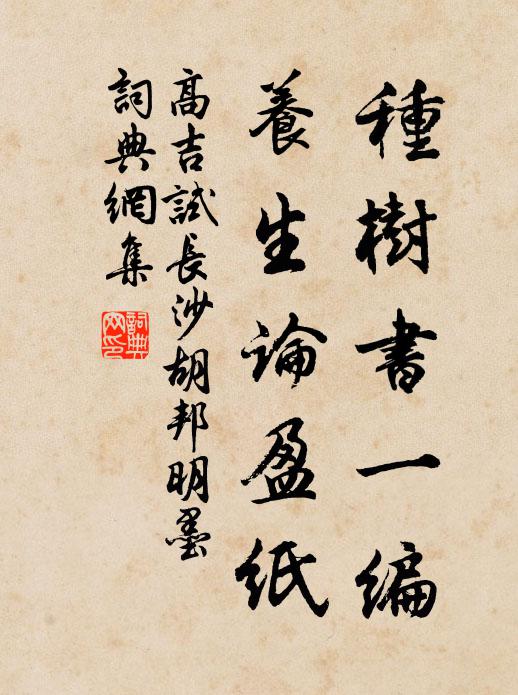 種樹書一編
養生論盈紙
高吉試長沙胡邦明墨
詞典網集
詞典
网印